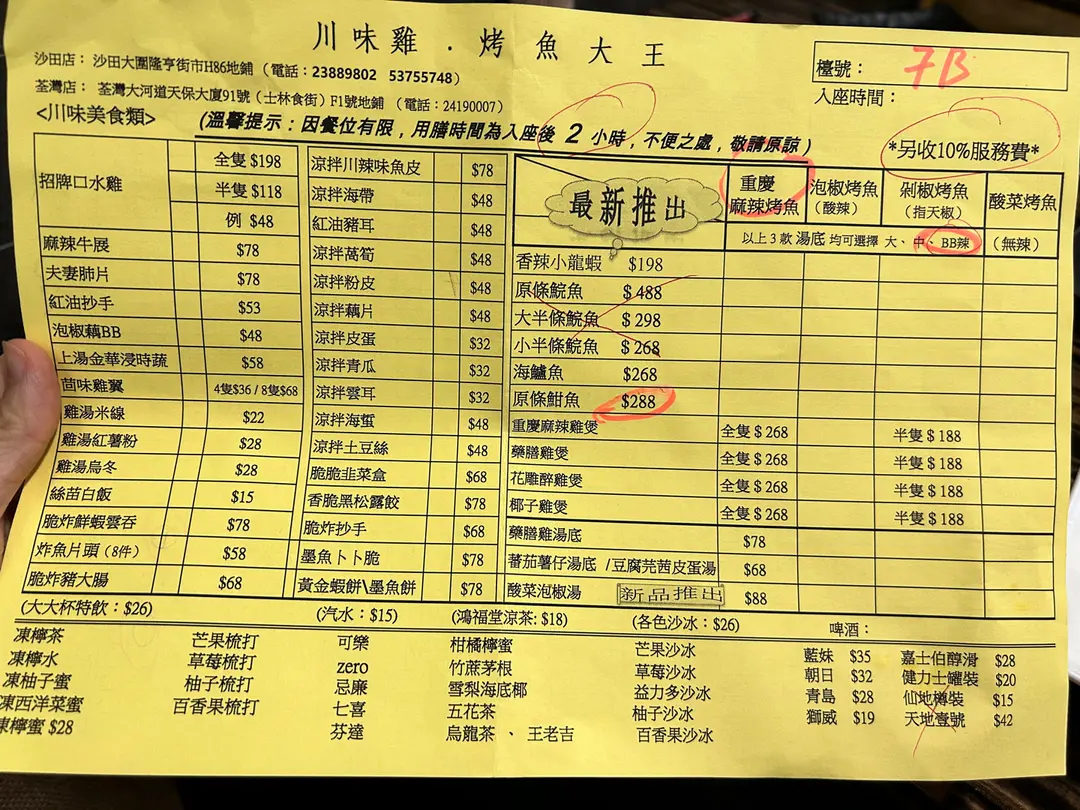 川味雞．烤魚大王
沙田店： 沙田大圍隆亨街市H86地鋪 （電話：23889802 53755748）
檯號： 7B
荃灣店： 荃灣大河道天保大廈91號（士林食街）F1號地鋪 （電話：24190007）
入座時間：
<川味美食類>
(溫馨提示：因餐位有限，用膳時間為入座後 2 小時，不便之處，敬請原諒)
*另收10%服務費*
招牌口水雞 全隻 $198
半隻 $118
例 $48
麻辣牛展 $78
夫妻肺片 $78
紅油抄手 $53
泡椒藕BB $48
上湯金華浸時蔬 $58
茴味雞翼 4隻$36 / 8隻$68
雞湯米線 $22
雞湯紅薯粉 $28
雞湯烏冬 $28
絲苗白飯 $15
脆炸鮮蝦雲吞 $78
炸魚片頭（8件） $58
脆炸豬大腸 $68
涼拌川辣味魚皮 $78
涼拌海帶 $48
紅油豬耳 $48
涼拌萵筍 $48
涼拌粉皮 $48
涼拌藕片 $48
涼拌皮蛋 $32
涼拌青瓜 $32
涼拌雲耳 $32
涼拌海蜇 $48
涼拌土豆絲 $48
脆脆韭菜盒 $68
香脆黑松露餃 $78
脆炸抄手 $68
墨魚卜卜脆 $78
黃金蝦餅\墨魚餅 $78
最新推出
重慶
麻辣烤魚
泡椒烤魚
（酸辣）
剁椒烤魚
（指天椒）
酸菜烤魚
以上3款湯底 均可選擇 大、中、BB辣
（無辣）
香辣小龍蝦 $198
原條鯇魚 $488
大半條鯇魚 $298
小半條鯇魚 $268
海鱸魚 $268
原條鉗魚 $288
重慶麻辣雞煲 全隻 $268 半隻 $188
藥膳雞煲 全隻 $268 半隻 $188
花雕醉雞煲 全隻 $268 半隻 $188
椰子雞煲 全隻 $268 半隻 $188
藥膳雞湯底 $78
蕃茄薯仔湯底 /豆腐芫茜皮蛋湯 $68
酸菜泡椒湯 新品推出 $88
(大大杯特飲：$26)
凍檸茶
凍檸水
凍柚子蜜
凍西洋菜蜜
凍檸蜜 $28
芒果梳打
草莓梳打
柚子梳打
百香果梳打
(汽水：$15)
可樂
zero
忌廉
七喜
芬達
(鴻福堂涼茶: $18)
柑橘檸蜜
竹蔗茅根
雪梨海底椰
五花茶
烏龍茶 、 王老吉
(各色沙冰：$26)
芒果沙冰
草莓沙冰
益力多沙冰
柚子沙冰
百香果沙冰
啤酒：
藍妹 $35
朝日 $32
青島 $28
獅威 $19
嘉士伯醇滑 $28
健力士罐裝 $20
仙地樽裝 $15
天地壹號 $42